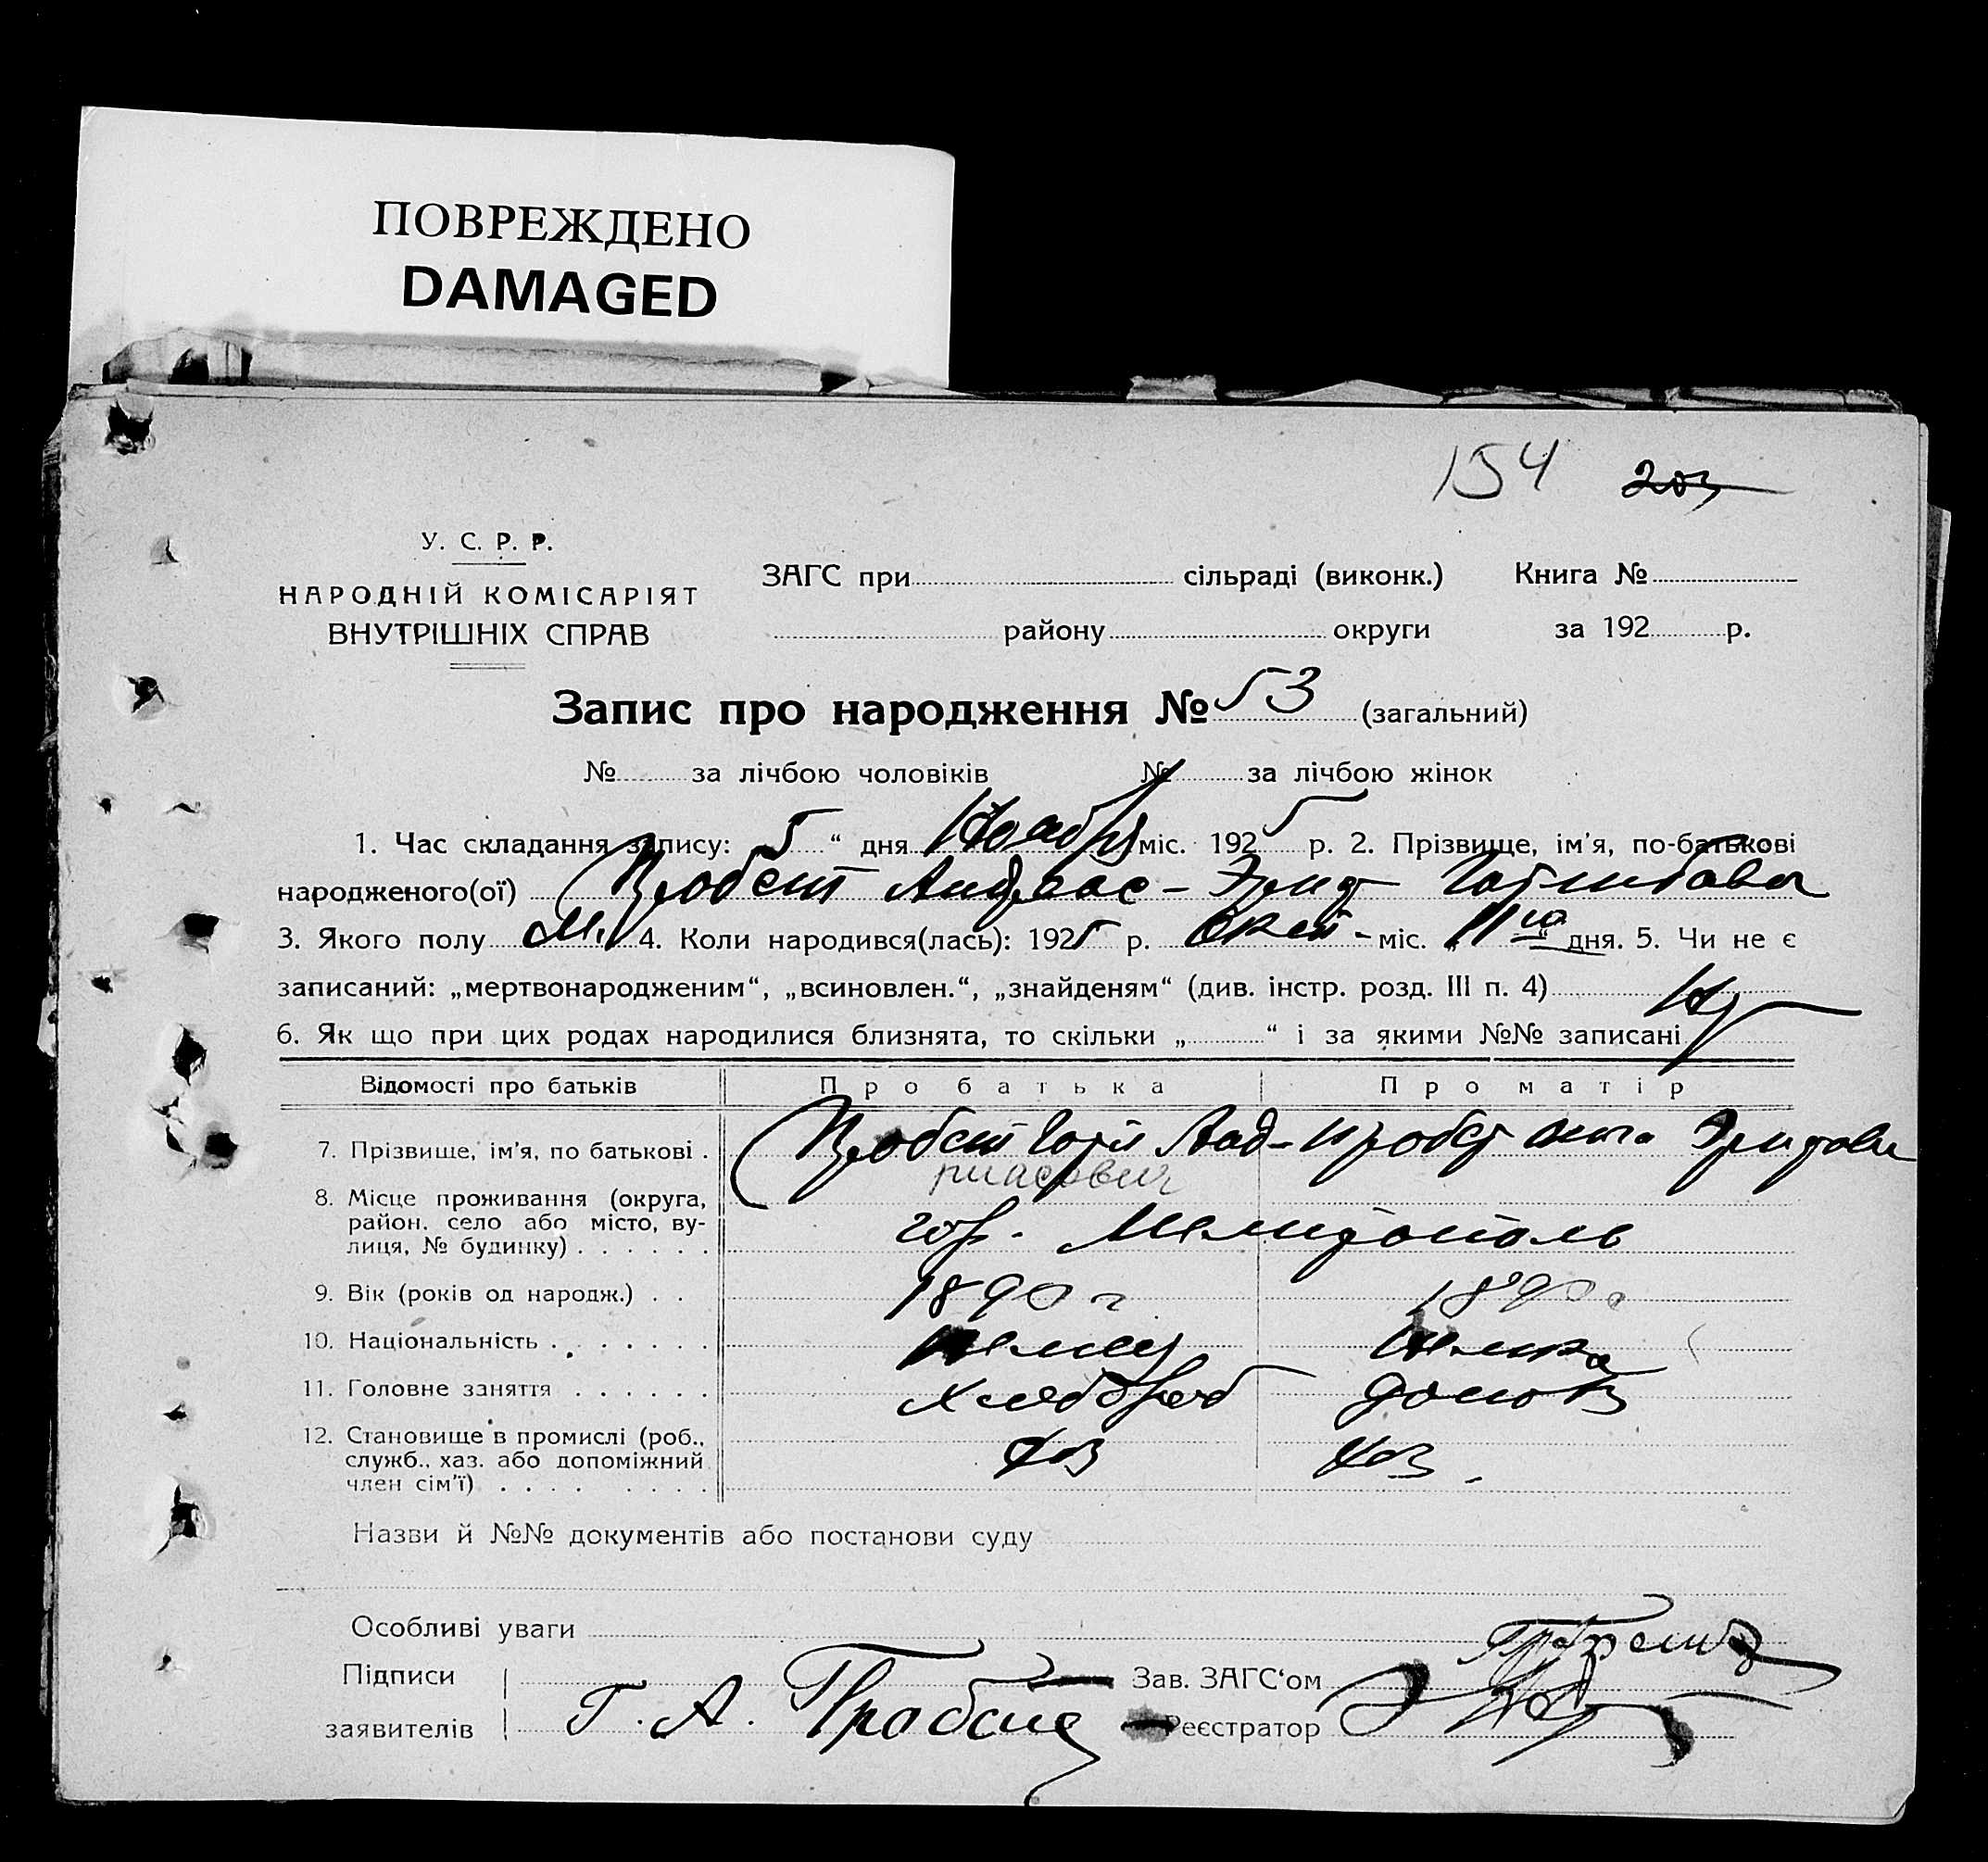 ПОВРЕЖДЕНО
DAMAGED
154 203
У. С. Р. Р.
НАРОДНІЙ КОМІСАРІЯТ
ВНУТРІШНІХ СПРАВ
ЗАГС при сільраді (виконк.) Книга №
району округи за 192 р.
Запис про народження № 53 (загальний)
№ за лічбою чоловіків № за лічбою жінок
1. Час складання запису: 5 “ дня Ноября міс. 1925 р. 2. Прізвище, ім'я, по-батькові
народженого(ої) Пробст Андреас-
3. Якого полу М. 4. Коли народився(лась): 1925 р. Окт- міс. „11го“ дня. 5. Чи не є
записаний: „мертвонародженим“, „всиновлен.“, „знайденям“ (див. інстр. розд. III п. 4)
6. Як що при цих родах народилися близнята, то скільки „ “ і за якими №№ записані
Відомості про батьків Про батька Про матір
7. Прізвище, ім'я, по батькові . Пробст Пробст
8. Місце проживання (округа,
район, село або місто, ву-
лиця, № будинку) . . . . . . гор. Мелитополь
9. Вік (років од народж.) . . 1890 г 1890
10. Національність . . . . . . . немец немка
11. Головне заняття . . . . . . хлебороб домохоз
12. Становище в промислі (роб.,
служб., хаз. або допоміжний
член сім'ї) . . . . . . . . хоз хоз.
Назви й №№ документів або постанови суду
Особливі уваги
Підписи Зав. ЗАГС‘ом
заявителів Г. А. Пробст Реєстратор